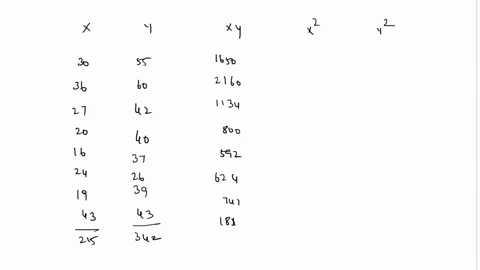 x y xy x² y²
30 55 1650
36 60 2160
27 42 1134
20 40 800
16 37 592
24 26 624
19 39 741
43 43 181
215 342